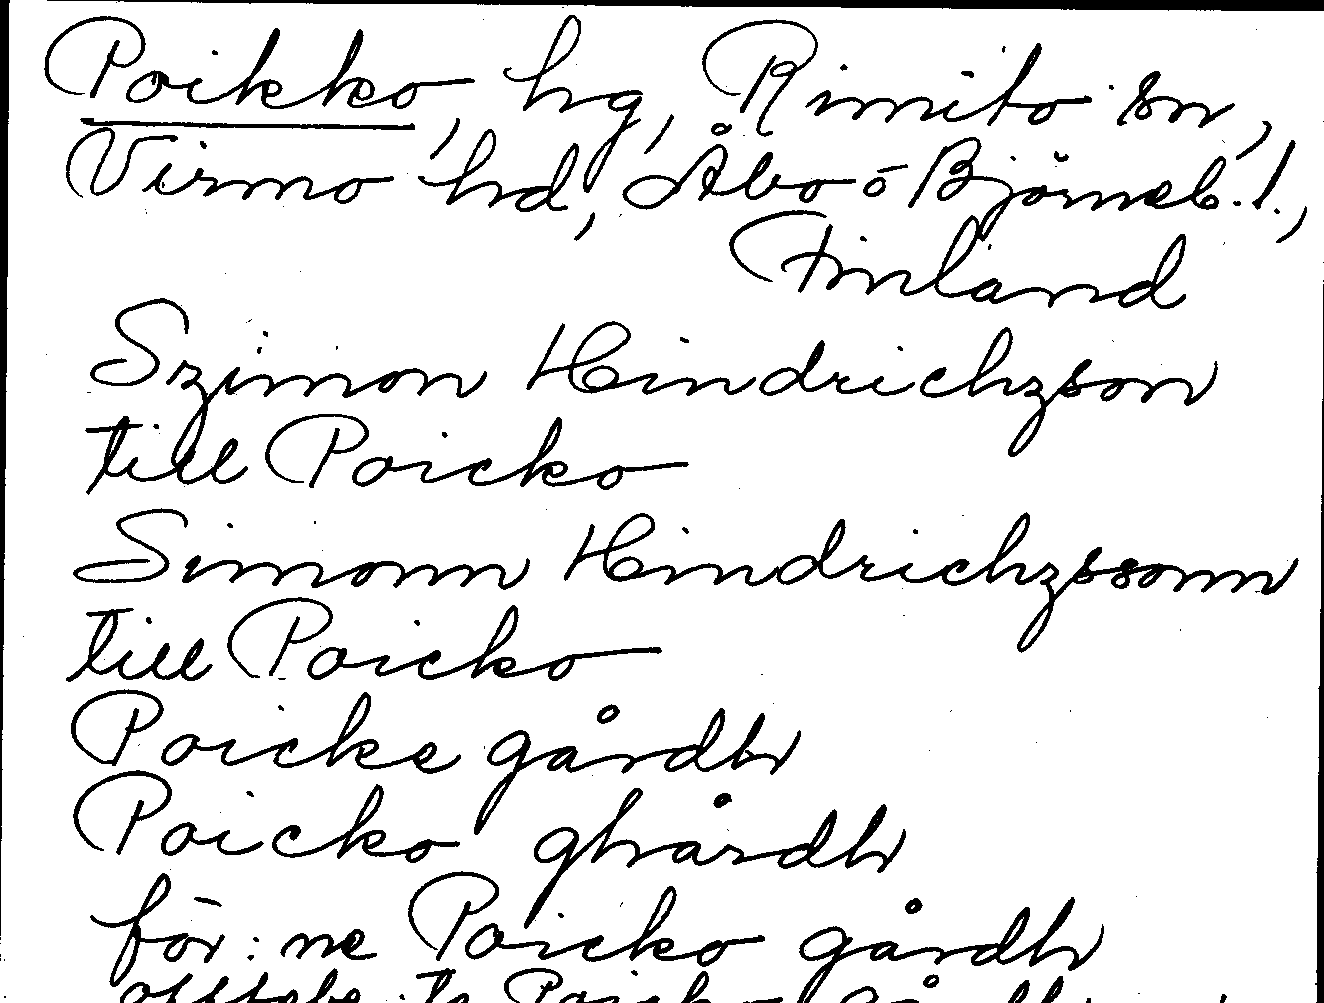 Poikko, hg, Rimito sn,
Virmo hd, Åbo o Björneb. l.,
Finland
Szimon Hindrichzson
till Poicko
Simonn Hindrichzssonn
till Poicko
Poicke gårdh
Poicko ghårdh
för:ne Poicko gårdh
Poicko